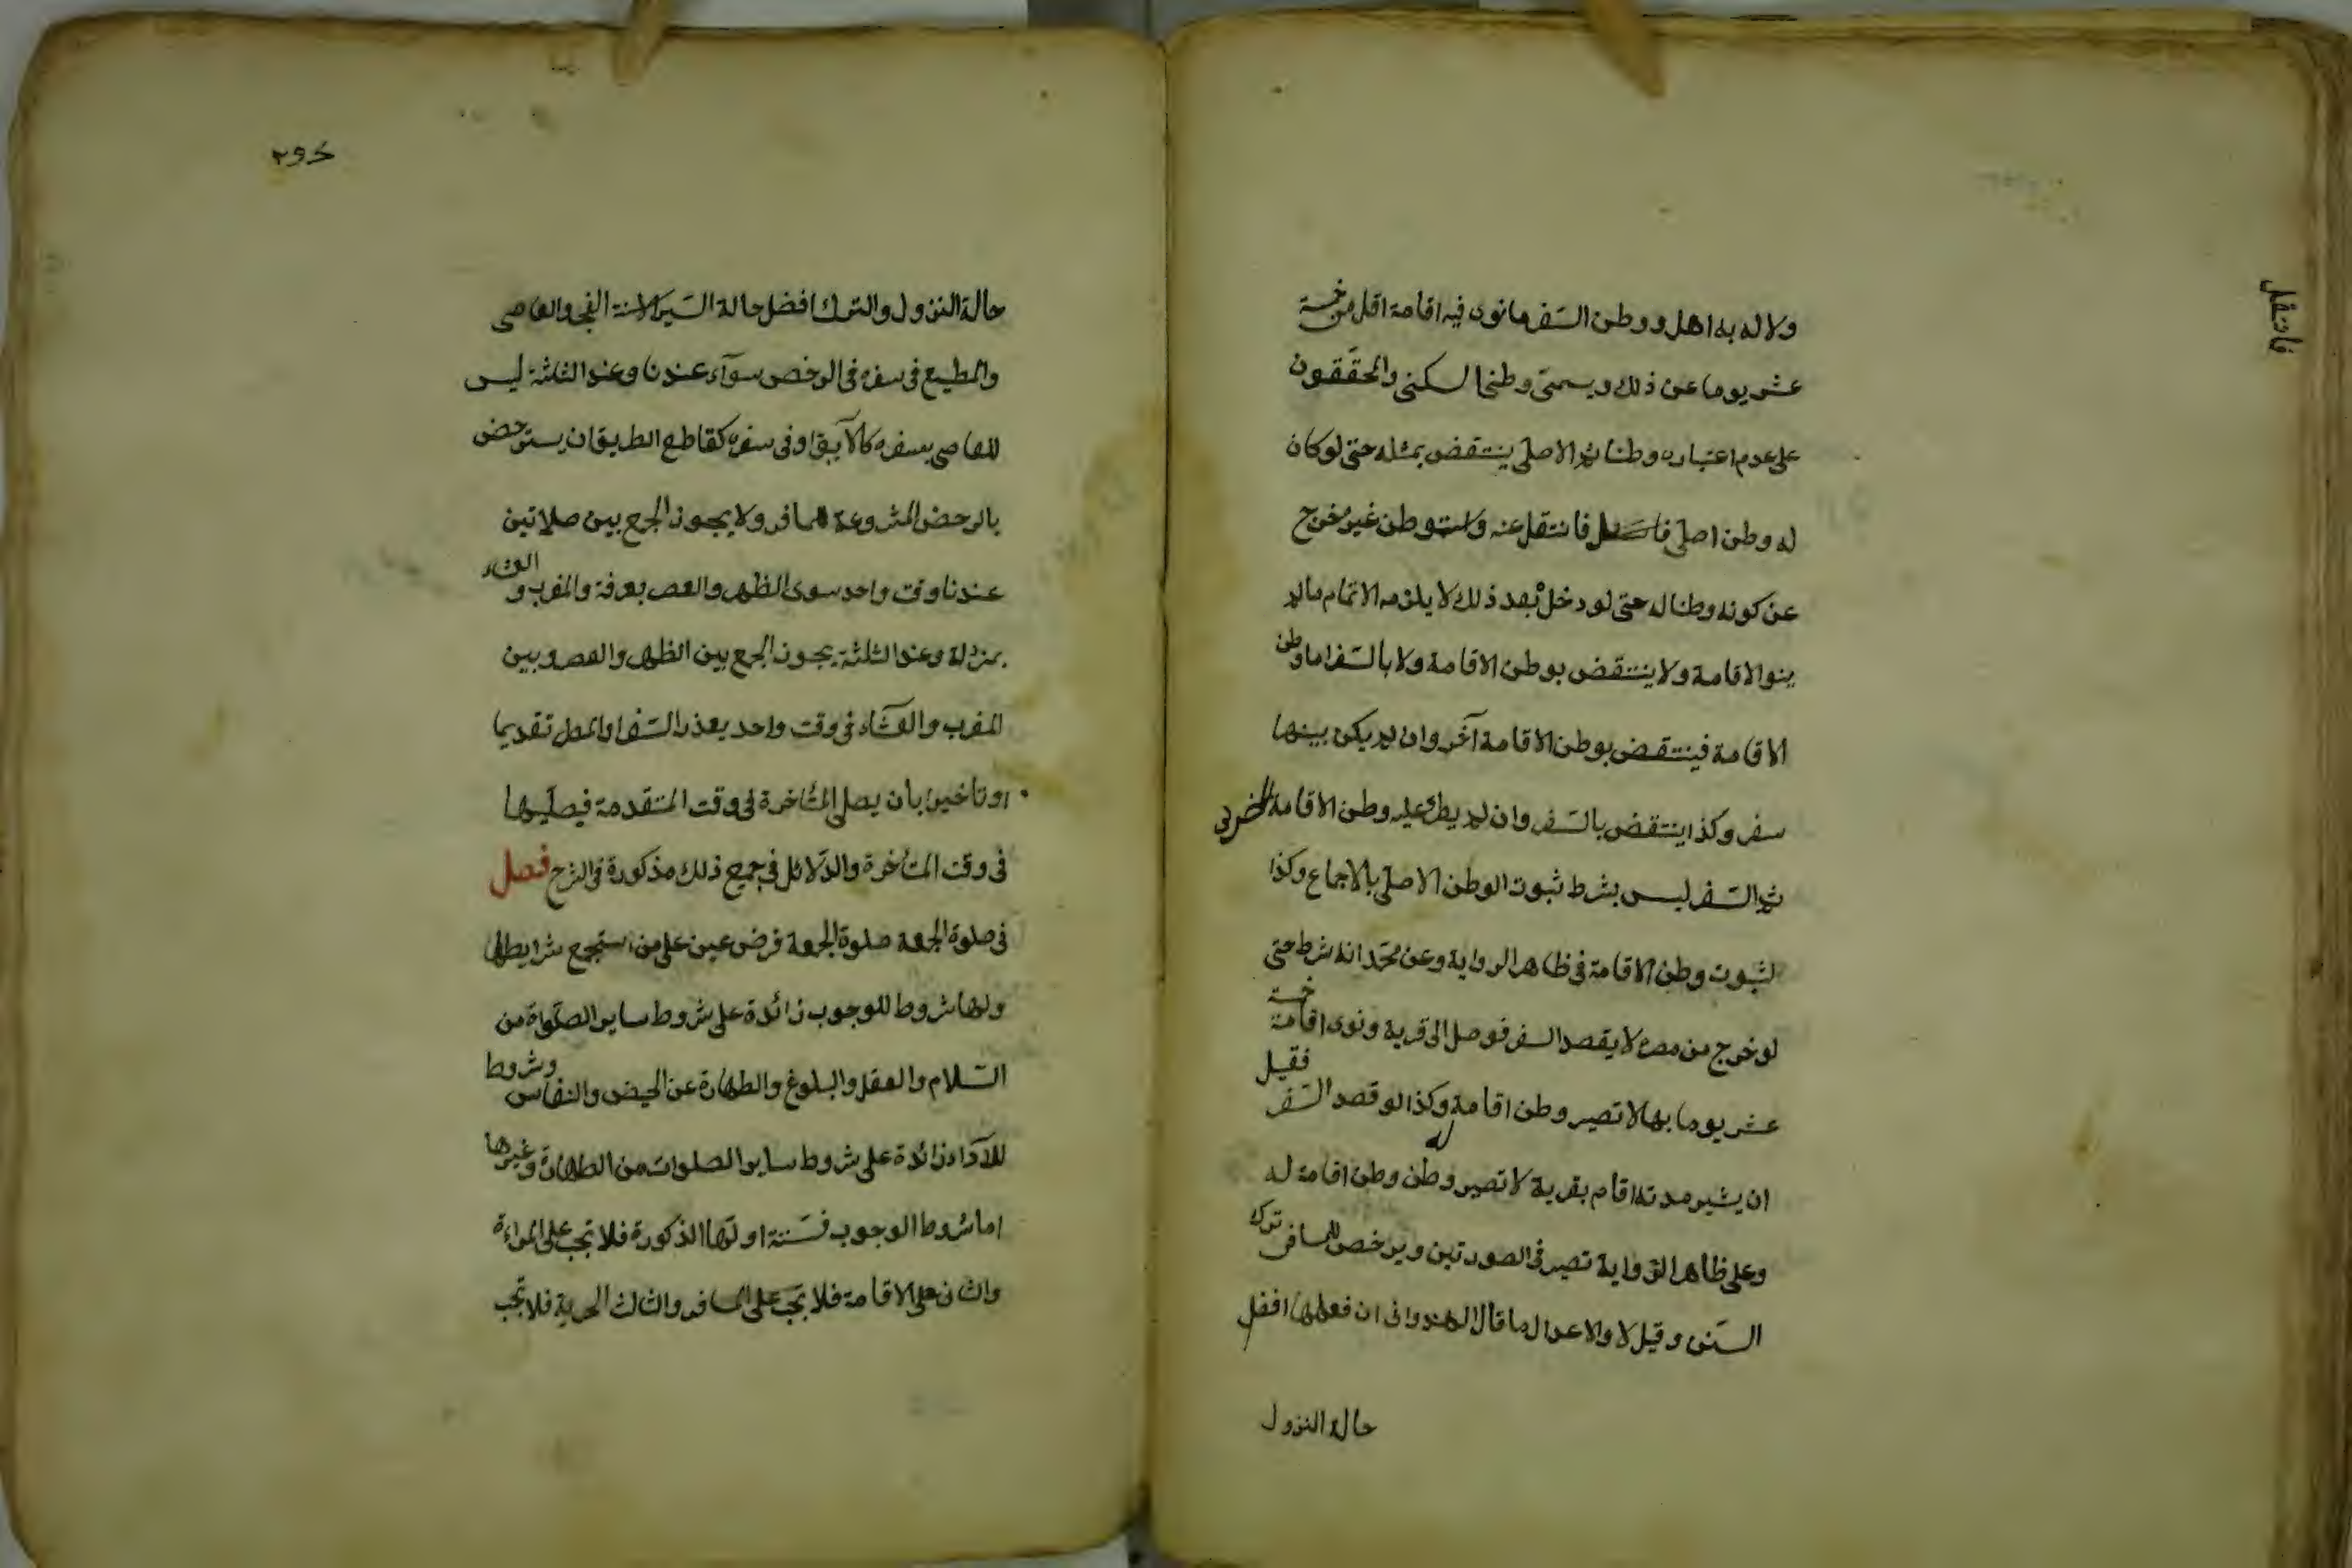 ولا له به اهل ووطن السّفر ما نوى فيه اقامة اقل من خمسة
عشر يوما عن ذلك ويسمّى وطن السكنى والمحقّقون
على عدم اعتباره وطنا ثم الاصلى ينتقض بمثله حتى لو كان
له وطن اصلى فانتقل عنه واستوطن غيره خرج
عن كونه وطنا له حتى لو دخل بعد ذلك لا يلزمه الاتمام مالم
ينو الاقامة ولا ينتقض بوطن الاقامة ولا بالسّفر اما وطن
الاقامة فينتقض بوطن الاقامة آخر وان لم يكن بينهما
سفر وكذا ينتقض بالسّفر وان لم يطرء عليه وطن الاقامة
ثم السّفر ليس بشرط ثبوت الوطن الاصلى بالاجماع وكذا
لثبوت وطن الاقامة فى ظاهر الرواية وعن محمّد انه شرط حتى
لو خرج من مصره لا يقصد السفر فوصل الى قرية ونوى اقامة خمسة
عشر يوما بها لا تصير وطن اقامة له وكذا لو قصد السّفر فقيل
ان يسير مدته اقام بقرية لا تصير وطن وطن اقامة له
وعلى ظاهر الرّواية تصير فى الصورتين ويرخص للمسافر ترك
السّنن وقيل لا والاعدل ما قال الهندوانى ان فعلها افضل
حالة النزول
فانتقل
حالة النزول والترك افضل حالة السّير الا سنة الفجر والعاصى
والمطيع فى سفره فى الرخص سوآء عندنا وعند الثلثة ليس
للعاصى بسفره كالآبق او فى سفره كقاطع الطريق ان يسترخص
بالرخص المشروعة للمسافر ولا يجوز الجمع بين صلاتين
عندنا وقت واحد سوى الظهر والعصر بعرفة والمغرب و العشاء
بمزدلة وعند الثلثة يجوز الجمع بين الظهر والعصر وبين
المغرب والعشّاء فى وقت واحد بعذر السّفر او المطر تقديما
او تاخيرا بان يصلى المتأخرة فى وقت المتقدمة فيصلّيها
فى وقت المتأخرة والدّلائل فى جميع ذلك مذكورة فى الشرح فصل
فى صلوة الجمعة صلوة الجمعة فرض عين على من استجمع شرايطها
ولها شروط للوجوب زائدة على شروط ساير الصّلواة من
السّلام والعقل والبلوغ والطهارة عن الحيض والنفاس وشروط
للآداء زائدة على شروط ساير الصلوات من الطهارة وغيرها
اما شروط الوجوب فستّة اولّها الذكورة فلا تجب على المراءة
والثانى على الاقامة فلا تجب على المسافر والثالث الحرية فلا تجب